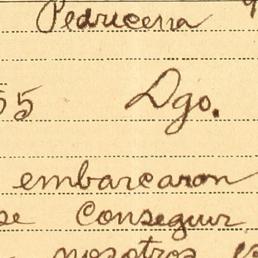 Pedriceña
55 Dgo.
embarcaron
se conseguir
nosotros